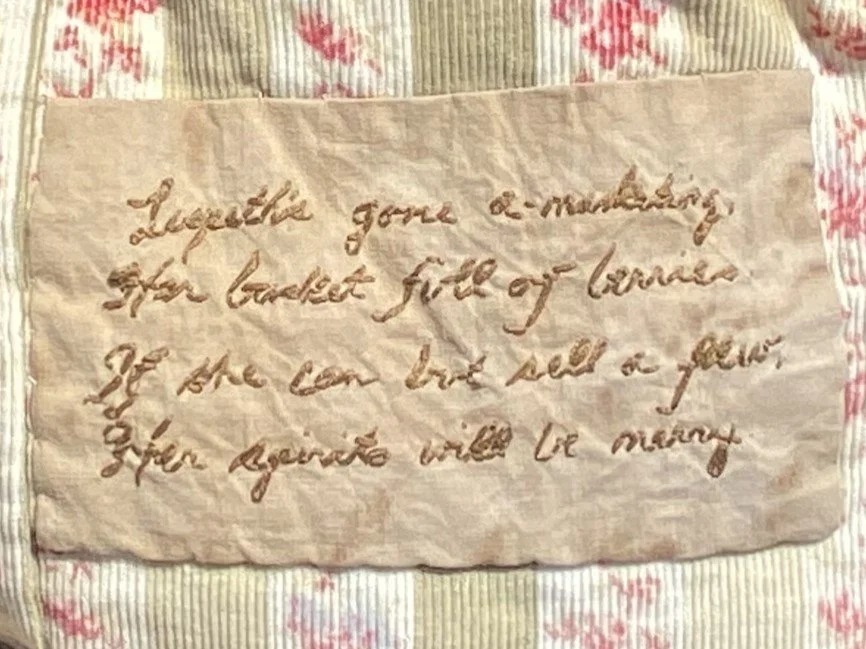 gone a-marketing,
Her basket full of berries
If she can but sell a few,
Her spirits will be merry